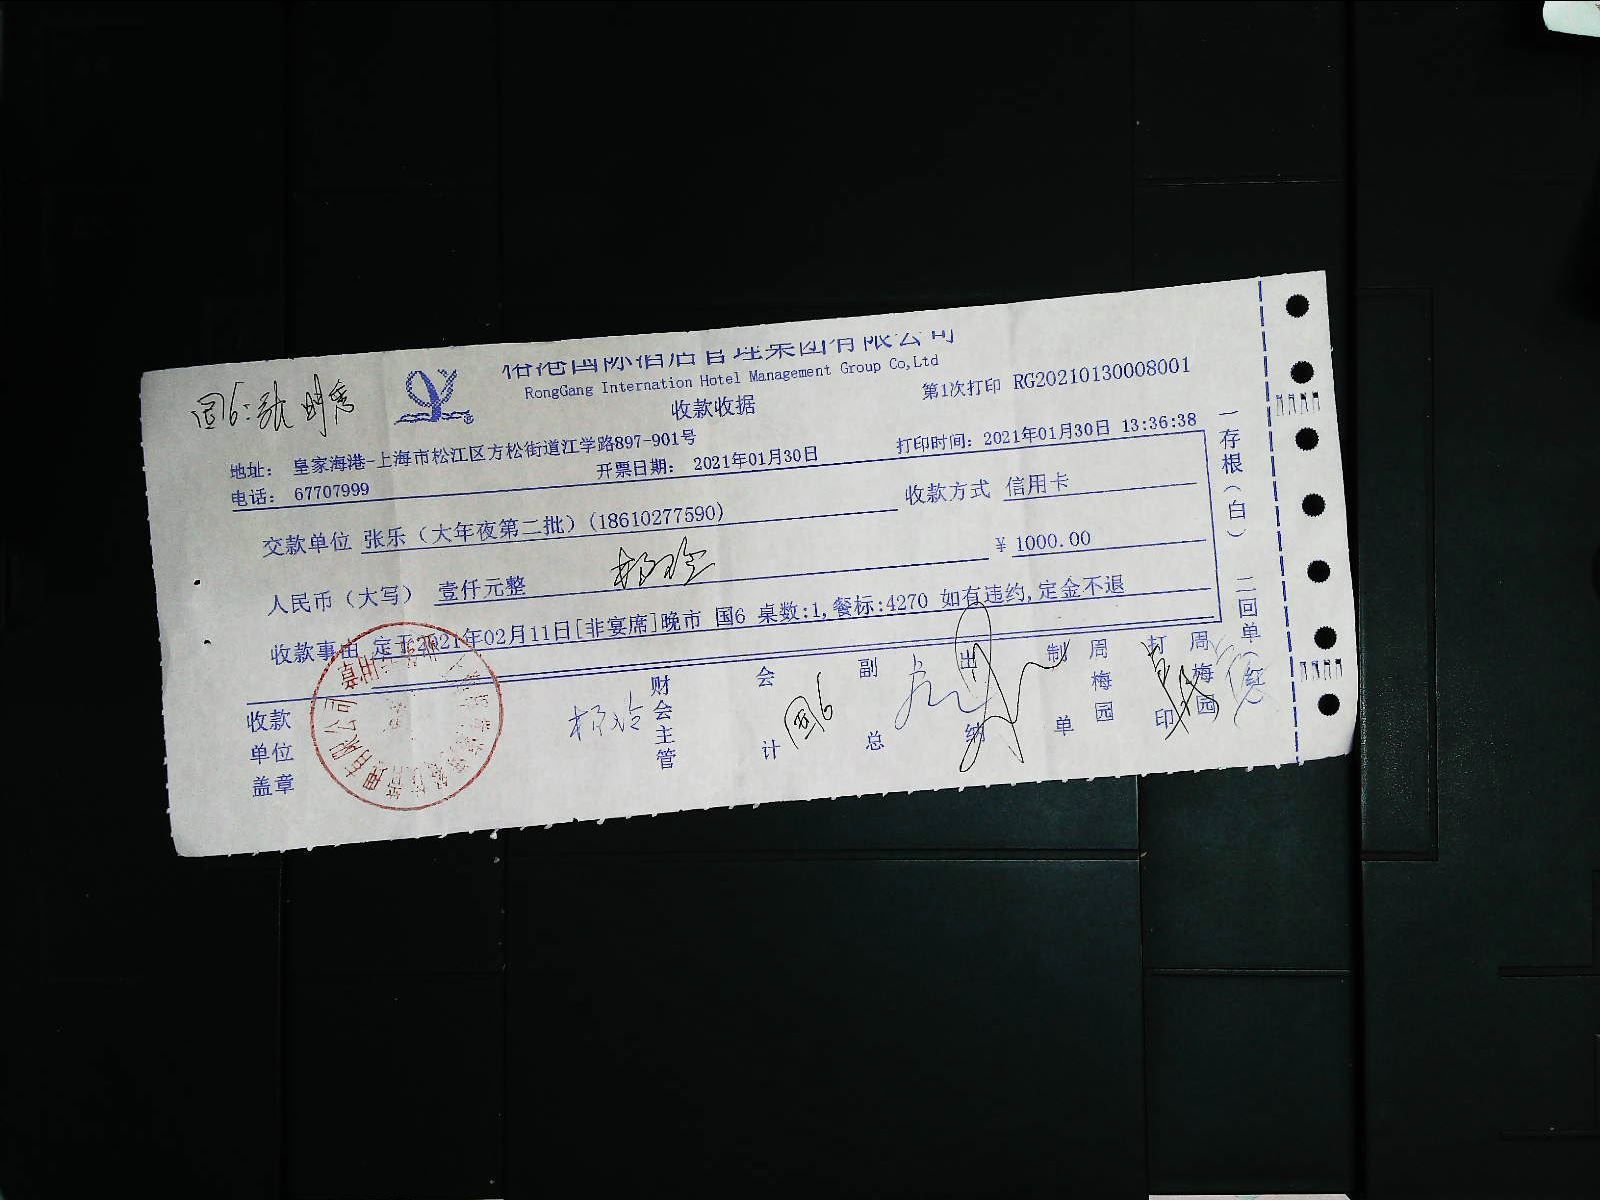 国际酒店管理集团有限公司
RongGang Internation Hotel Management Group Co,Ltd
收款收据
第1次打印 RG20210130008001
国6:
地址: 皇家海港-上海市松江区方松街道江学路897-901号
电话: 67707999
开票日期: 2021年01月30日
打印时间: 2021年01月30日 13:36:38
交款单位 张乐（大年夜第二批）(18610277590)
收款方式 信用卡
人民币（大写） 壹仟元整
杨玲
¥ 1000.00
收款事由 定于2021年02月11日[非宴席]晚市 国6 桌数:1,餐标:4270 如有违约,定金不退
收款单位盖章
杨玲
财会主管
会计
国6
副总
出纳
制单 周梅园
打印 周梅园
一存根（白） 二回单（红）
有限公司